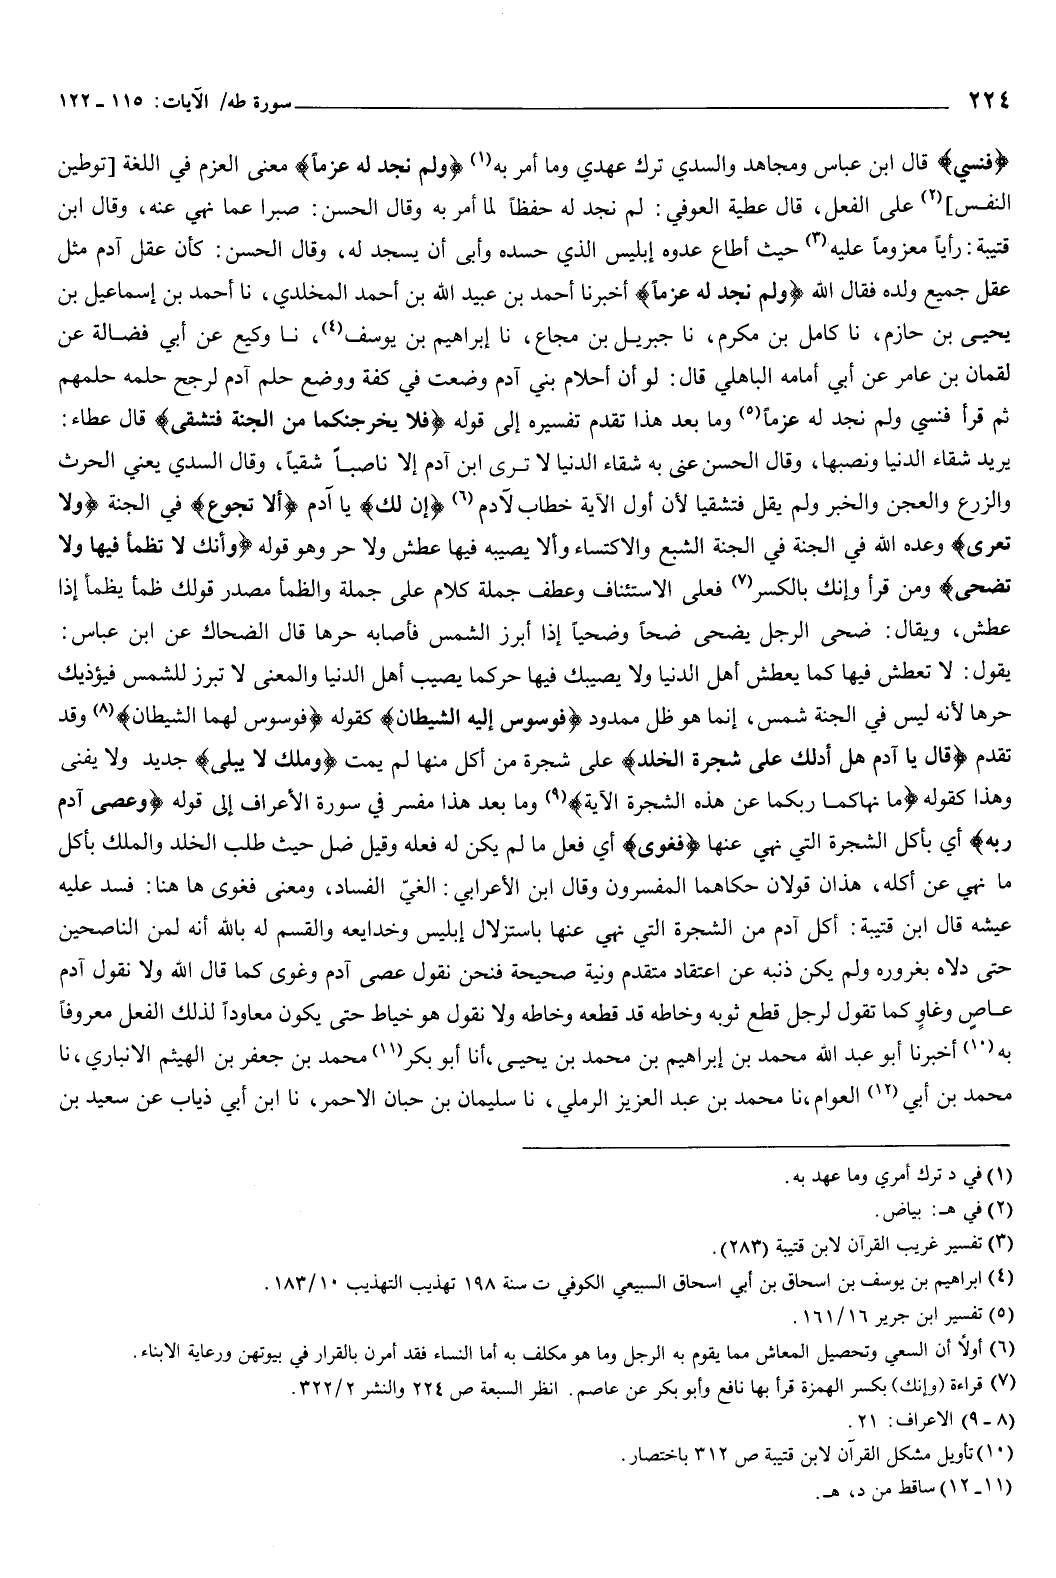 ٢٢٤ سورة طه/ الآيات: ١١٥ ـ ١٢٢
﴿فنسي﴾ قال ابن عباس ومجاهد والسدي ترك عهدي وما أمر به(١) ﴿ولم نجد له عزماً﴾ معنى العزم في اللغة [توطين
النفس](٢) على الفعل، قال عطية العوفي: لم نجد له حفظاً لما أمر به وقال الحسن: صبرا عما نهي عنه، وقال ابن
قتيبة: رأياً معزوماً عليه(٣) حيث أطاع عدوه إبليس الذي حسده وأبى أن يسجد له، وقال الحسن: كأن عقل آدم مثل
عقل جميع ولده فقال الله ﴿ولم نجد له عزماً﴾ أخبرنا أحمد بن عبيد الله بن أحمد المخلدي، نا أحمد بن إسماعيل بن
يحيى بن حازم، نا كامل بن مكرم، نا جبريل بن مجاع، نا إبراهيم بن يوسف(٤)، نا وكيع عن أبي فضالة عن
لقمان بن عامر عن أبي أمامه الباهلي قال: لو أن أحلام بني آدم وضعت في كفة ووضع حلم آدم لرجح حلمه حلمهم
ثم قرأ فنسي ولم نجد له عزماً(٥) وما بعد هذا تقدم تفسيره إلى قوله ﴿فلا يخرجنكما من الجنة فتشقى﴾ قال عطاء:
يريد شقاء الدنيا ونصبها، وقال الحسن عنى به شقاء الدنيا لا ترى ابن آدم إلا ناصباً شقياً، وقال السدي يعني الحرث
والزرع والعجن والخبر ولم يقل فتشقيا لأن أول الآية خطاب لآدم(٦) ﴿إن لك﴾ يا آدم ﴿ألا تجوع﴾ في الجنة ﴿ولا
تعرى﴾ وعده الله في الجنة في الجنة الشبع والاكتساء وألا يصيبه فيها عطش ولا حر وهو قوله ﴿وأنك لا تظمأ فيها ولا
تضحى﴾ ومن قرأ وإنك بالكسر(٧) فعلى الاستئناف وعطف جملة كلام على جملة والظمأ مصدر قولك ظمأ يظمأ إذا
عطش، ويقال: ضحى الرجل يضحى ضحاً وضحياً إذا أبرز الشمس فأصابه حرها قال الضحاك عن ابن عباس:
يقول: لا تعطش فيها كما يعطش أهل الدنيا ولا يصيبك فيها حركما يصيب أهل الدنيا والمعنى لا تبرز للشمس فيؤذيك
حرها لأنه ليس في الجنة شمس، إنما هو ظل ممدود ﴿فوسوس إليه الشيطان﴾ كقوله ﴿فوسوس لهما الشيطان﴾(٨) وقد
تقدم ﴿قال يا آدم هل أدلك على شجرة الخلد﴾ على شجرة من أكل منها لم يمت ﴿وملك لا يبلى﴾ جديد ولا يفنى
وهذا كقوله ﴿ما نهاكما ربكما عن هذه الشجرة الآية﴾(٩) وما بعد هذا مفسر في سورة الأعراف إلى قوله ﴿وعصى آدم
ربه﴾ أي بأكل الشجرة التي نهي عنها ﴿فغوى﴾ أي فعل ما لم يكن له فعله وقيل ضل حيث طلب الخلد والملك بأكل
ما نهي عن أكله، هذان قولان حكاهما المفسرون وقال ابن الأعرابي: الغيّ الفساد، ومعنى فغوى ها هنا: فسد عليه
عيشه قال ابن قتيبة: أكل آدم من الشجرة التي نهي عنها باستزلال إبليس وخدايعه والقسم له بالله أنه لمن الناصحين
حتى دلاه بغروره ولم يكن ذنبه عن اعتقاد متقدم ونية صحيحة فنحن نقول عصى آدم وغوى كما قال الله ولا نقول آدم
عاصٍ وغاوٍ كما تقول لرجل قطع ثوبه وخاطه قد قطعه وخاطه ولا نقول هو خياط حتى يكون معاوداً لذلك الفعل معروفاً
به(١٠) أخبرنا أبو عبد الله محمد بن إبراهيم بن محمد بن يحيى، أنا أبو بكر(١١) محمد بن جعفر بن الهيثم الانباري، نا
محمد بن أبي(١٢) العوام، نا محمد بن عبد العزيز الرملي، نا سليمان بن حبان الاحمر، نا ابن أبي ذياب عن سعيد بن
(١) في د ترك أمري وما عهد به.
(٢) في هـ: بياض.
(٣) تفسير غريب القرآن لابن قتيبة (٢٨٣).
(٤) ابراهيم بن يوسف بن اسحاق بن أبي اسحاق السبيعي الكوفي ت سنة ١٩٨ تهذيب التهذيب ١٨٣/١٠.
(٥) تفسير ابن جرير ١٦١/١٦.
(٦) أولاً أن السعي وتحصيل المعاش مما يقوم به الرجل وما هو مكلف به أما النساء فقد أمرن بالقرار في بيوتهن ورعاية الابناء.
(٧) قراءة (وإنك) بكسر الهمزة قرأ بها نافع وأبو بكر عن عاصم. انظر السبعة ص ٢٢٤ والنشر ٣٢٢/٢.
(٨ ـ ٩) الاعراف: ٢١.
(١٠) تأويل مشكل القرآن لابن قتيبة ص ٣١٢ باختصار.
(١١ـ ١٢) ساقط من د، هـ.